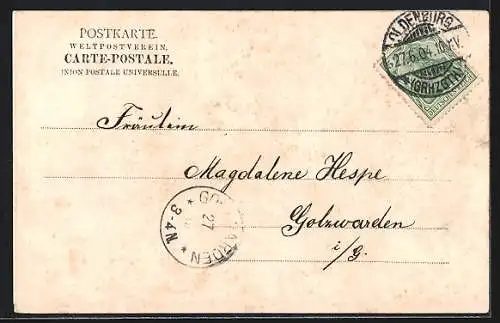 POSTKARTE.
WELTPOSTVEREIN.
CARTE-POSTALE.
UNION POSTALE UNIVERSELLE.
OLDENBURG
27.6.04. 10-11V.
(GRHZGTH.)
Fräulein
Magdalene Hespe
Golzwarden
i/g.
GOLZWARDEN
27
3-4 N